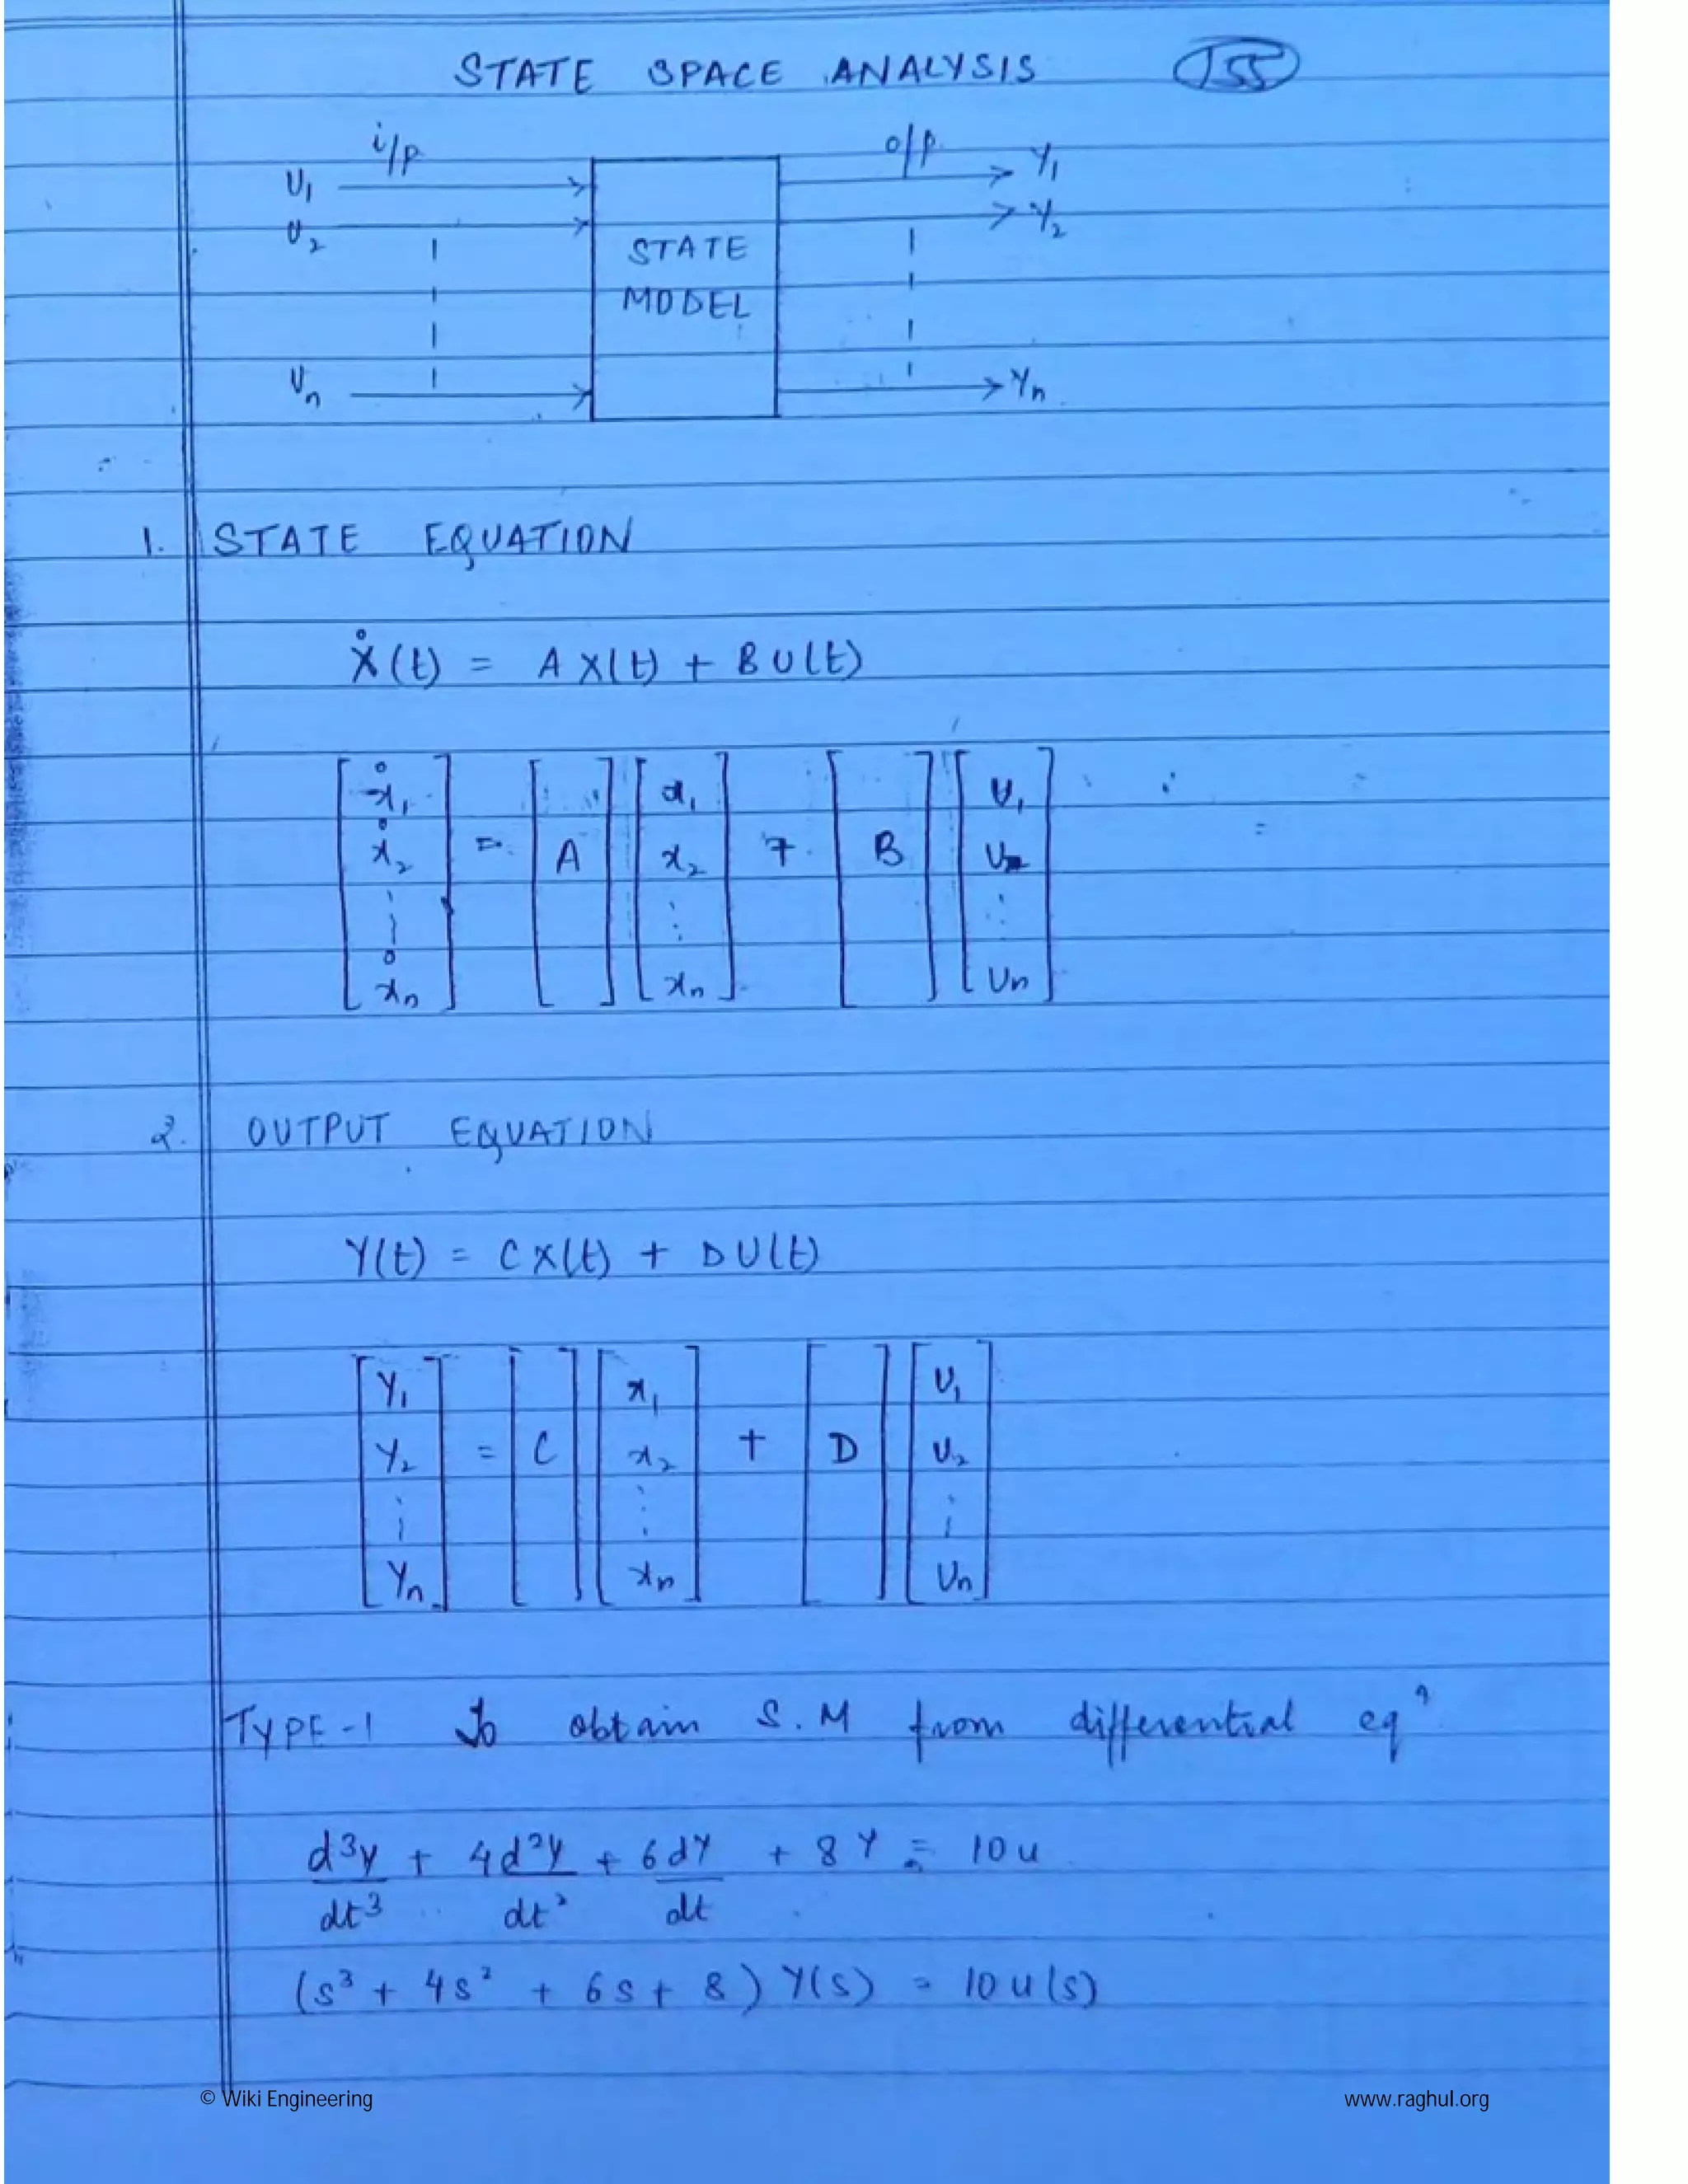 STATE SPACE ANALYSIS 155
i/p o/p
U₁ Y₁
U₂ Y₂
STATE
MODEL
Uₙ Yₙ
1. STATE EQUATION
Ẋ(t) = A X(t) + B U(t)
[ẋ₁ ẋ₂ ⋮ ẋₙ] = [A] [x₁ x₂ ⋮ xₙ] + [B] [U₁ U₂ ⋮ Uₙ]
2. OUTPUT EQUATION
Y(t) = C X(t) + D U(t)
[Y₁ Y₂ ⋮ Yₙ] = [C] [x₁ x₂ ⋮ xₙ] + [D] [U₁ U₂ ⋮ Uₙ]
TYPE-1 To obtain S.M from differential eqⁿ
d³y/dt³ + 4d²y/dt² + 6dy/dt + 8Y = 10u
(s³ + 4s² + 6s + 8) Y(s) = 10 u(s)
© Wiki Engineering www.raghul.org